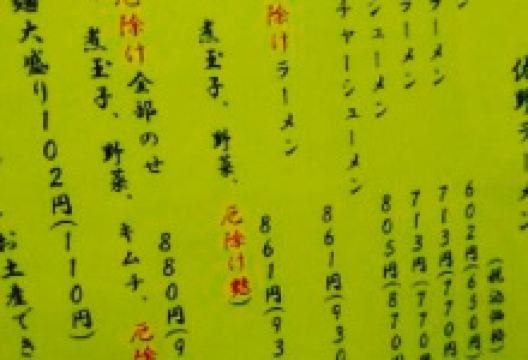 佐野ラーメン
(税込価格)
602円(650円
ラーメン 713円(770円
ラーメン 713円(770
ンメン
ンューメン 805円(870
チャーシューメン 861円(930
除けラーメン 861円(93
煮玉子、野菜、厄除け麩)
厄除け全部のせ 880円(9
煮玉子、野菜、キムチ、厄除
麺大盛り102円(110円)
お土産でき